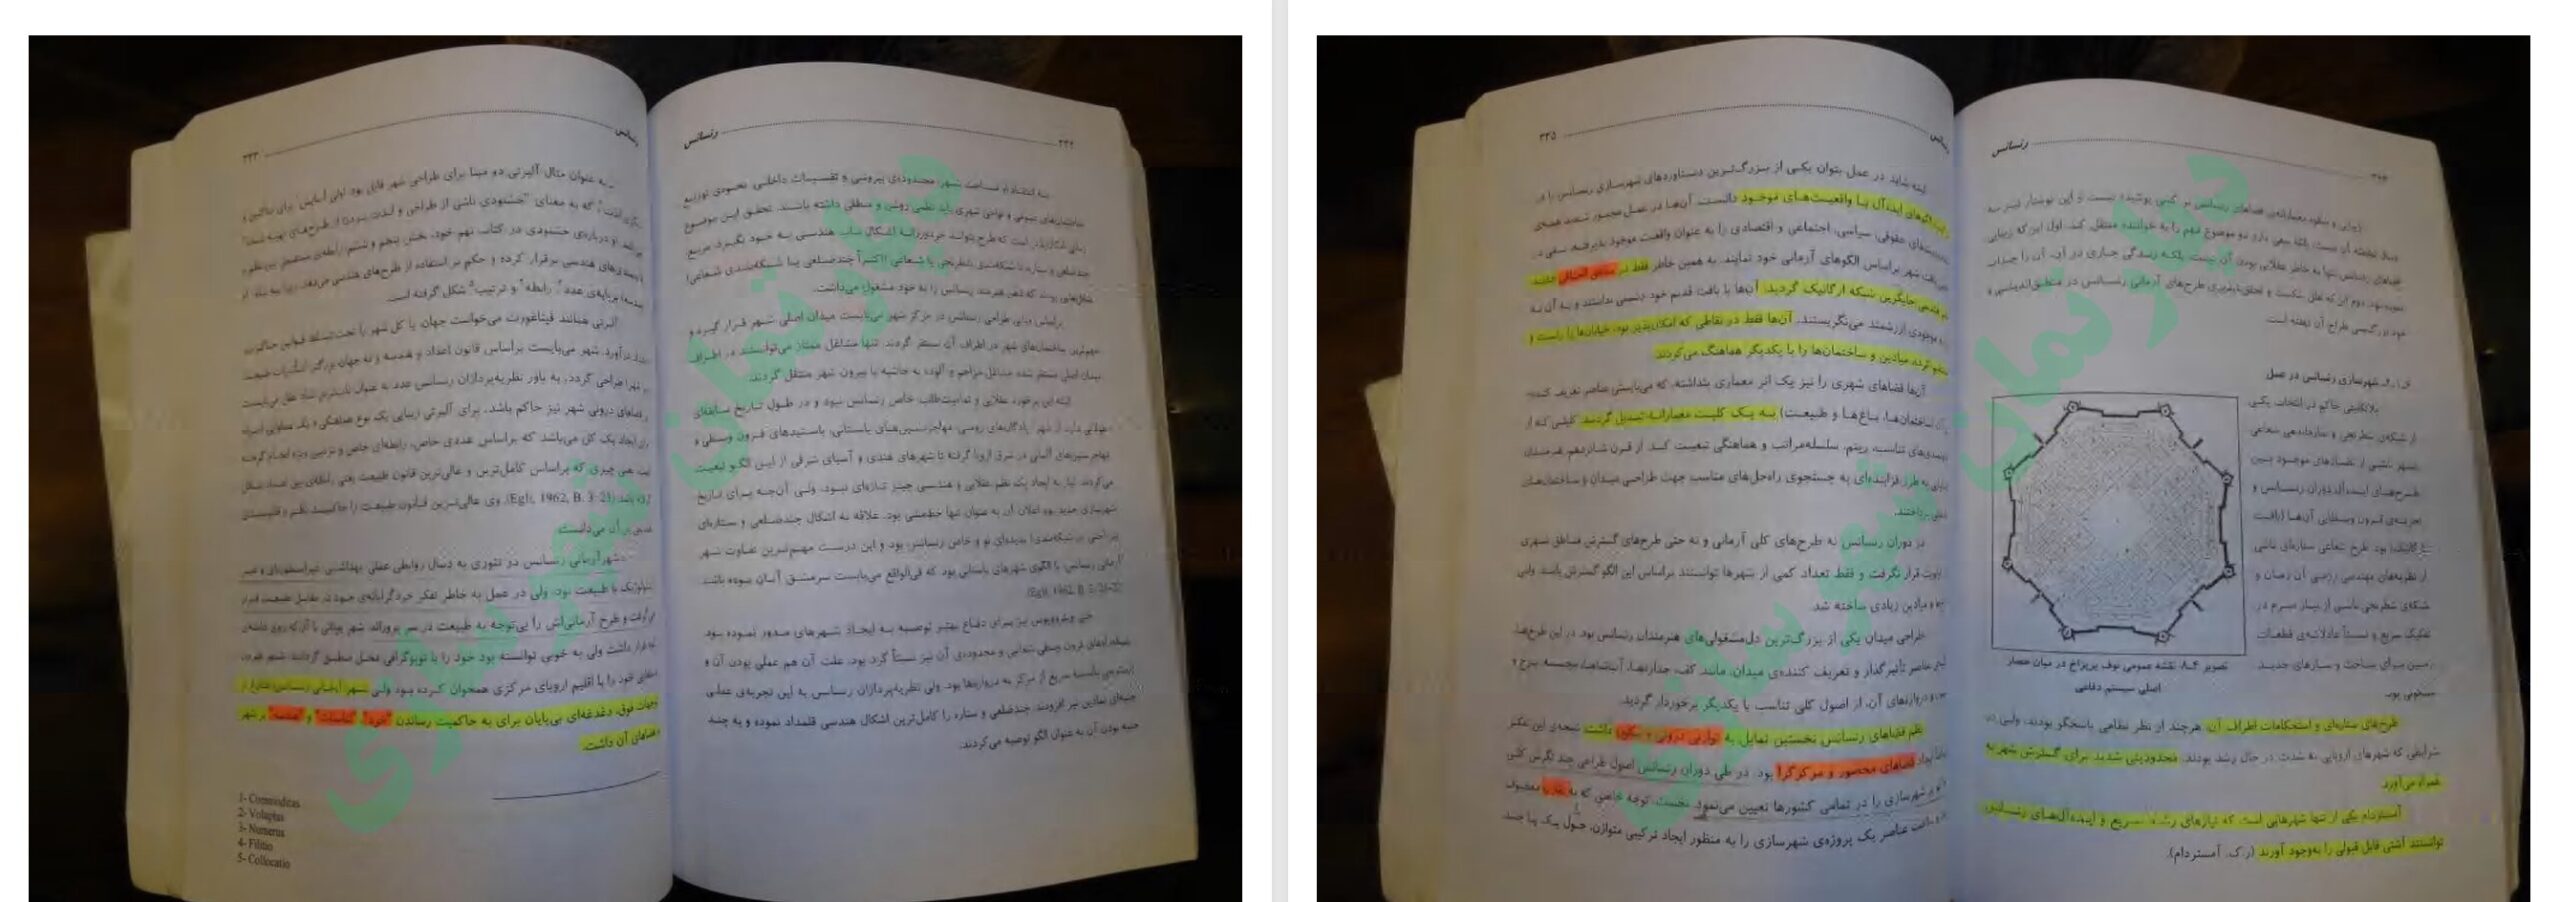 رنسانس ۳۳۳
- به عنوان مثال آلبرتی دو مبنا برای طراحی شهر قایل بود اولی آسایش برای ساکنین و
که به معنای "خشنودی ناشی از طراحی و لذت بردن از طرح‌های تهیه شده"
درباره‌ی خشنودی در کتاب نهم خود، بخش پنجم و ششم، رابطه‌ی مستقیم بین نظم و
هندسی برقرار کرده و حکم بر استفاده از طرح‌های هندسی می‌دهد
برپایه‌ی عدد، رابطه و ترتیب شکل گرفته است.
آلبرتی همانند فیثاغورث می‌خواست جهان یا کل شهر را تحت تسلط قوانین حاکم بر
درآورد. شهر می‌بایست براساس قانون اعداد و هندسه و نه جهان بزرگتر
طراحی گردد. به باور نظریه‌پردازان رنسانس عدد به عنوان
فضاهای درونی شهر نیز حاکم باشد. برای آلبرتی زیبایی یک نوع هماهنگی و
ایجاد یک کل می‌باشد که براساس عددی خاص، رابطه‌ای خاص و ترتیبی ویژه انجام گرفته
چیزی که براساس کامل‌ترین و عالی‌ترین قانون طبیعت یعنی رابطه‌ی بین
باشد (Egli, 1962, B. 3: 21). وی عالی‌ترین قانون طبیعت را حاکمیت نظم
بر آن می‌دانست.
شهر آرمانی رنسانس در تئوری به دنبال روابطی عملی، بهداشتی
با طبیعت بود، ولی در عمل به خاطر تفکر خردگرایانه‌ی خود در مقابل طبیعت قرار
می‌گرفت و طرح آرمانی‌اش را بی‌توجه به طبیعت در سر می‌پروراند. شهر یونانی با آن که روی
قرار داشت ولی به خوبی توانسته بود خود را با توپوگرافی محل منطبق گرداند، شهر قرون
خود را با اقلیم اروپای مرکزی همخوان کرده بود ولی شهر آرمانی رنسانس فارغ از
جهات فوق، دغدغه‌ای بی‌پایان برای به حاکمیت رساندن "خرد"، "تناسبات" و "هندسه" بر شهر
و فضاهای آن داشت.
1- Commoditas
2- Voluptas
3- Numerus
4- Filitio
5- Collocatio
رنسانس ۳۳۲
به اعتقاد او مساحت شهر، محدوده‌ی بیرونی و تقسیمات داخلی نحوه‌ی توزیع
ساختمان‌های عمومی و نواحی شهری باید نظمی روشن و منطقی داشته باشند. تحقق این موضوع
زمانی امکان‌پذیر است که طرح بتواند اشکال ناب هندسی به خود بگیرد. مربع،
چندضلعی و ستاره با شبکه‌بندی شطرنجی یا شعاعی (اکثراً چندضلعی با شبکه‌بندی شعاعی)
شکل‌هایی بودند که ذهن هنرمند رنسانس را به خود مشغول می‌داشت.
براساس مبانی طراحی رنسانس در مرکز شهر می‌بایست میدان اصلی شهر قرار گیرد و
مهم‌ترین ساختمان‌های شهر در اطراف آن مستقر گردند. تنها مشاغل ممتاز می‌توانستند در اطراف
میدان اصلی مستقر شده، مشاغل مزاحم و آلوده به حاشیه یا بیرون شهر منتقل گردند.
البته این برخورد عقلایی و تمامیت‌طلب خاص رنسانس نبود و در طول تاریخ سابقه‌ای
طولانی دارد. از شهر - پادگان‌های رومی، مهاجرنشین‌های باستانی، باستیدهای قرون وسطی و
مهاجرنشین‌های آلمانی در شرق اروپا گرفته تا شهرهای هندی و آسیای شرقی از این الگو تبعیت
می‌کردند. نیاز به ایجاد یک نظم عقلایی و هندسی چیز تازه‌ای نبود، ولی آن‌چه برای تاریخ
شهرسازی جدید بود اعلان آن به عنوان تنها خط‌مشی بود. علاقه به اشکال چندضلعی و ستاره‌ای
پدیده‌ای نو و خاص رنسانس بود و این درست مهم‌ترین تفاوت شهر
آرمانی رنسانس با الگوی شهرهای باستانی بود که فی‌الواقع می‌بایست سرمشق آنان بوده باشد
(Egli, 1962, B.
حتی ویتروویوس نیز برای دفاع بهتر توصیه به ایجاد شهرهای مدور نموده بود.
قرون وسطی شعاعی و محدوده‌ی آن نیز نسبتاً گرد بود. علت آن هم عملی بودن آن و
سریع از مرکز به دروازه‌ها بود. ولی نظریه‌پردازان رنسانس به این تجربه‌ی عملی
جنبه‌ای نمادین نیز افزودند. چندضلعی و ستاره را کامل‌ترین اشکال هندسی قلمداد نموده و به
جنبه بودن آن به عنوان الگو توصیه می‌کردند.
دپارتمان شهرسازی
رنسانس ۳۳۵
البته شاید در عمل بتوان یکی از بزرگ‌ترین دستاوردهای شهرسازی رنسانس را
ایده‌آل با واقعیت‌های موجود دانست. آن‌ها در عمل مجبور شدند همه‌ی
حقوقی، سیاسی، اجتماعی و اقتصادی را به عنوان واقعیت موجود پذیرفته سعی در
بافت شهر براساس الگوهای آرمانی خود نمایند. به همین خاطر فقط در مناطق الحاقی جدید
هندسی جایگزین شبکه ارگانیک گردید. آن‌ها با بافت قدیم خود دشمنی نداشتند و به آن به
موجودی ارزشمند می‌نگریستند. آن‌ها فقط در نقاطی که امکان‌پذیر بود، خیابان‌ها را راست و
کرده، میادین و ساختمان‌ها را با یکدیگر هماهنگ می‌کردند.
آن‌ها فضاهای شهری را نیز یک اثر معماری پنداشته، که می‌بایستی عناصر تعریف کننده‌ی
(ساختمان‌ها، باغ‌ها و طبیعت) به یک کلیت معمارانه تبدیل گردند. کلیتی که از
تناسب، ریتم، سلسله‌مراتب و هماهنگی تبعیت کند. از قرن شانزدهم هنرمندان
به طرز فزاینده‌ای به جستجوی راه‌حل‌های مناسب جهت طراحی میدان و ساختمان‌های
پرداختند.
در دوران رنسانس نه طرح‌های کلی آرمانی و نه حتی طرح‌های گسترش مناطق شهری
قرار نگرفت و فقط تعداد کمی از شهرها توانستند براساس این الگو گسترش یابند. ولی
و میادین زیادی ساخته شد.
طراحی میدان یکی از بزرگ‌ترین دل‌مشغولی‌های هنرمندان رنسانس بود. در این طرح‌ها،
عناصر تأثیرگذار و تعریف کننده‌ی میدان، مانند کف، جداره‌ها، آبنماها، مجسمه، برج و
و دروازه‌های آن، از اصول کلی تناسب با یکدیگر برخوردار گردید.
نظم فضاهای رنسانس نخستین تمایل به توازنی درونی و سکون داشت. نتیجه‌ی این تفکر
ایجاد فضاهای محصور و مرکزگرا بود. در طی دوران رنسانس اصول طراحی چند نگرش کلی
بر شهرسازی را در تمامی کشورها تعیین می‌نمود. نخست، توجه خاصی که به نما معطوف
عناصر یک پروژه‌ی شهرسازی را به منظور ایجاد ترکیبی متوازن، حول یک یا چند
رنسانس ۳۳۴
زیبایی و شکوه معمارانه‌ی فضاهای رنسانس بر کسی پوشیده نیست و این نوشتار نیز به
دنبال تخطئه آن نیست، بلکه سعی دارد دو موضوع مهم را به خواننده منتقل کند. اول این که زیبایی
فضاهای رنسانس تنها به خاطر عقلایی بودن آن نیست بلکه زندگی جاری در آن، آن را جذاب
نموده بود. دوم این که علل شکست و تحقق‌ناپذیری طرح‌های آرمانی رنسانس در منطق‌اندیشی و
خود بزرگ‌بینی طراح آن نهفته است.
شهرسازی رنسانس در عمل
بلاتکلیفی حاکم در انتخاب یکی
از شبکه‌ی شطرنجی و سازماندهی شعاعی
شهر، ناشی از تضادهای موجود بین
طرح‌های ایده‌آل دوران رنسانس و
تجربه‌ی قرون وسطایی آن‌ها (بافت
ارگانیک) بود. طرح شعاعی ستاره‌ای ناشی
از نظریه‌های مهندسی رزمی آن زمان و
شبکه‌ی شطرنجی ناشی از نیاز مبرم در
تفکیک سریع و نسبتاً عادلانه‌ی قطعات
زمین برای ساخت و سازهای جدید
مسکونی بود.
تصویر ۴-۸: نقشه عمومی نوف بریزاخ در میان حصار
اصلی سیستم دفاعی
طرح‌های ستاره‌ای و استحکامات اطراف آن، هرچند از نظر نظامی پاسخگو بودند، ولی در
شرایطی که شهرهای اروپایی به شدت در حال رشد بودند، محدودیتی شدید برای گسترش شهر به
همراه می‌آورد.
آمستردام یکی از تنها شهرهایی است که نیازهای رشد سریع و ایده‌آل‌های رنسانس
توانستند آشتی قابل قبولی را به‌وجود آورند (ر.ک. آمستردام).
دپارتمان شهرسازی